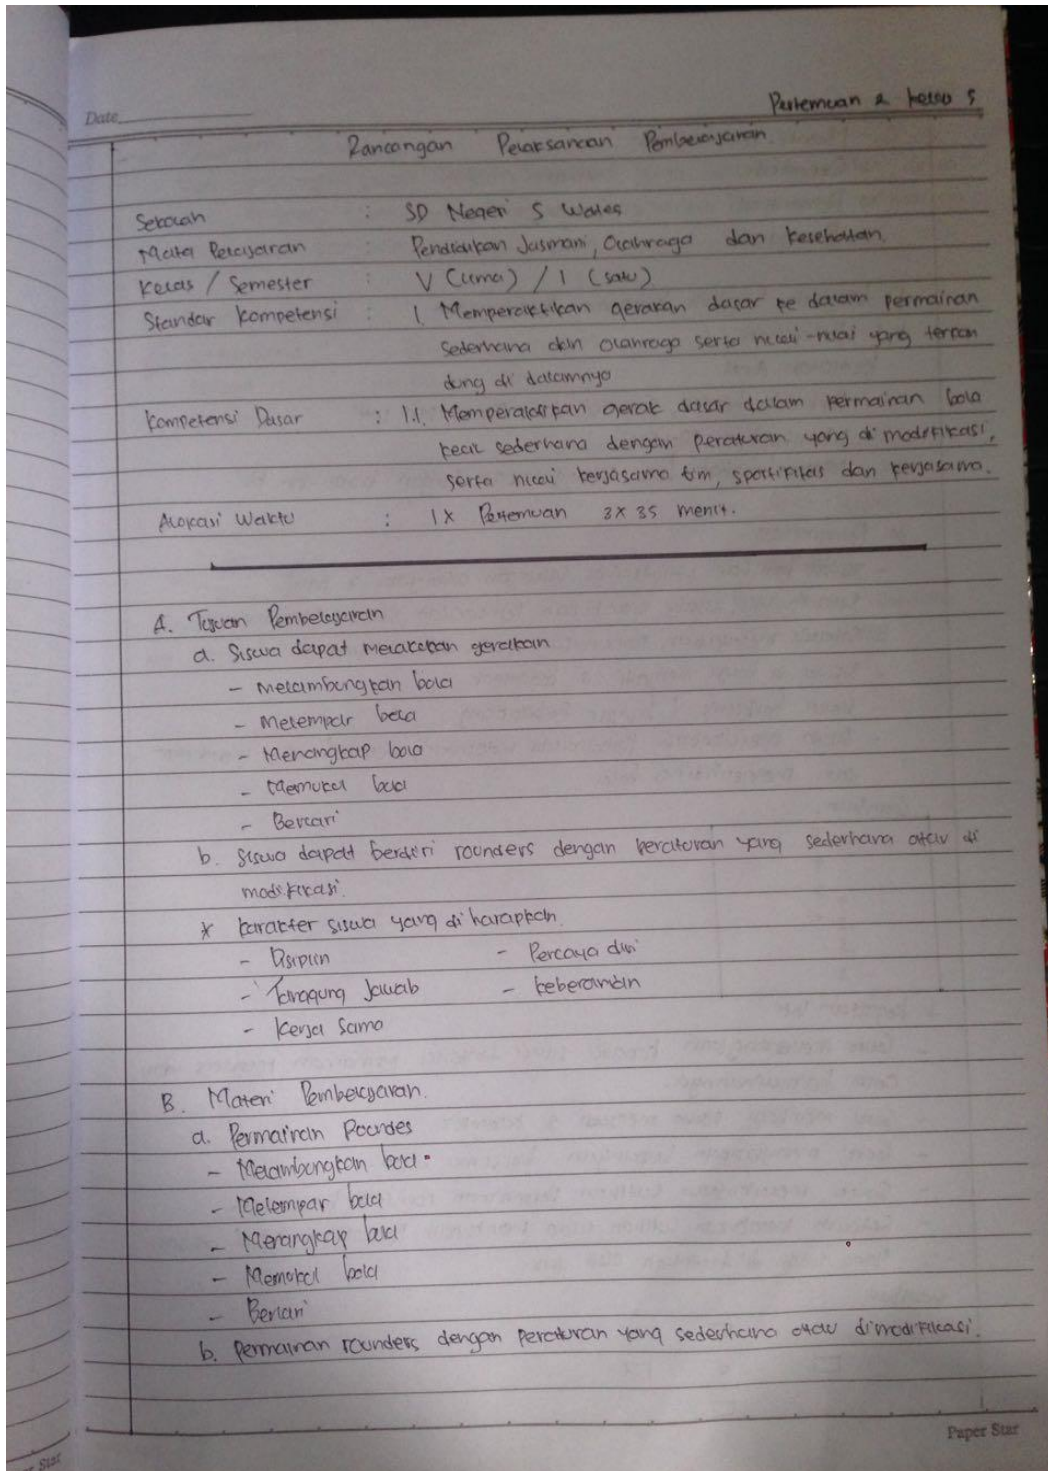 Date
Pertemuan 2 kelas 5
Rancangan Pelaksanaan Pembelajaran
Sekolah : SD Negeri 5 Wates
Mata Pelajaran : Pendidikan Jasmani, Olahraga dan Kesehatan.
Kelas / Semester : V (lima) / 1 (satu)
Standar Kompetensi : 1. Mempraktikan gerakan dasar ke dalam permainan
sederhana dan olahraga serta nilai-nilai yang terkan
dung di dalamnya
Kompetensi Dasar : 1.1. Mempraktikan gerak dasar dalam permainan bola
kecil sederhana dengan peraturan yang di modifikasi,
serta nilai kerjasama tim, sportifitas dan kerjasama.
Alokasi Waktu : 1x Pertemuan 3x35 menit.
A. Tujuan Pembelajaran
a. Siswa dapat melakukan gerakan
- Melambungkan bola
- Melempar bola
- Menangkap bola
- Memukul bola
- Berlari
b. Siswa dapat rounders dengan peraturan yang sederhana atau di
modifikasi.
* Karakter siswa yang di harapkan.
- Disiplin - Percaya diri
- Tanggung Jawab - keberanian
- Kerja Sama
B. Materi Pembelajaran.
a. Permainan Rounders
- Melambungkan bola.
- Melempar bola
- Menangkap bola
- Memukul bola
- Berlari
b. Permainan rounders dengan peraturan yang sederhana atau dimodifikasi.
Paper Star
Star